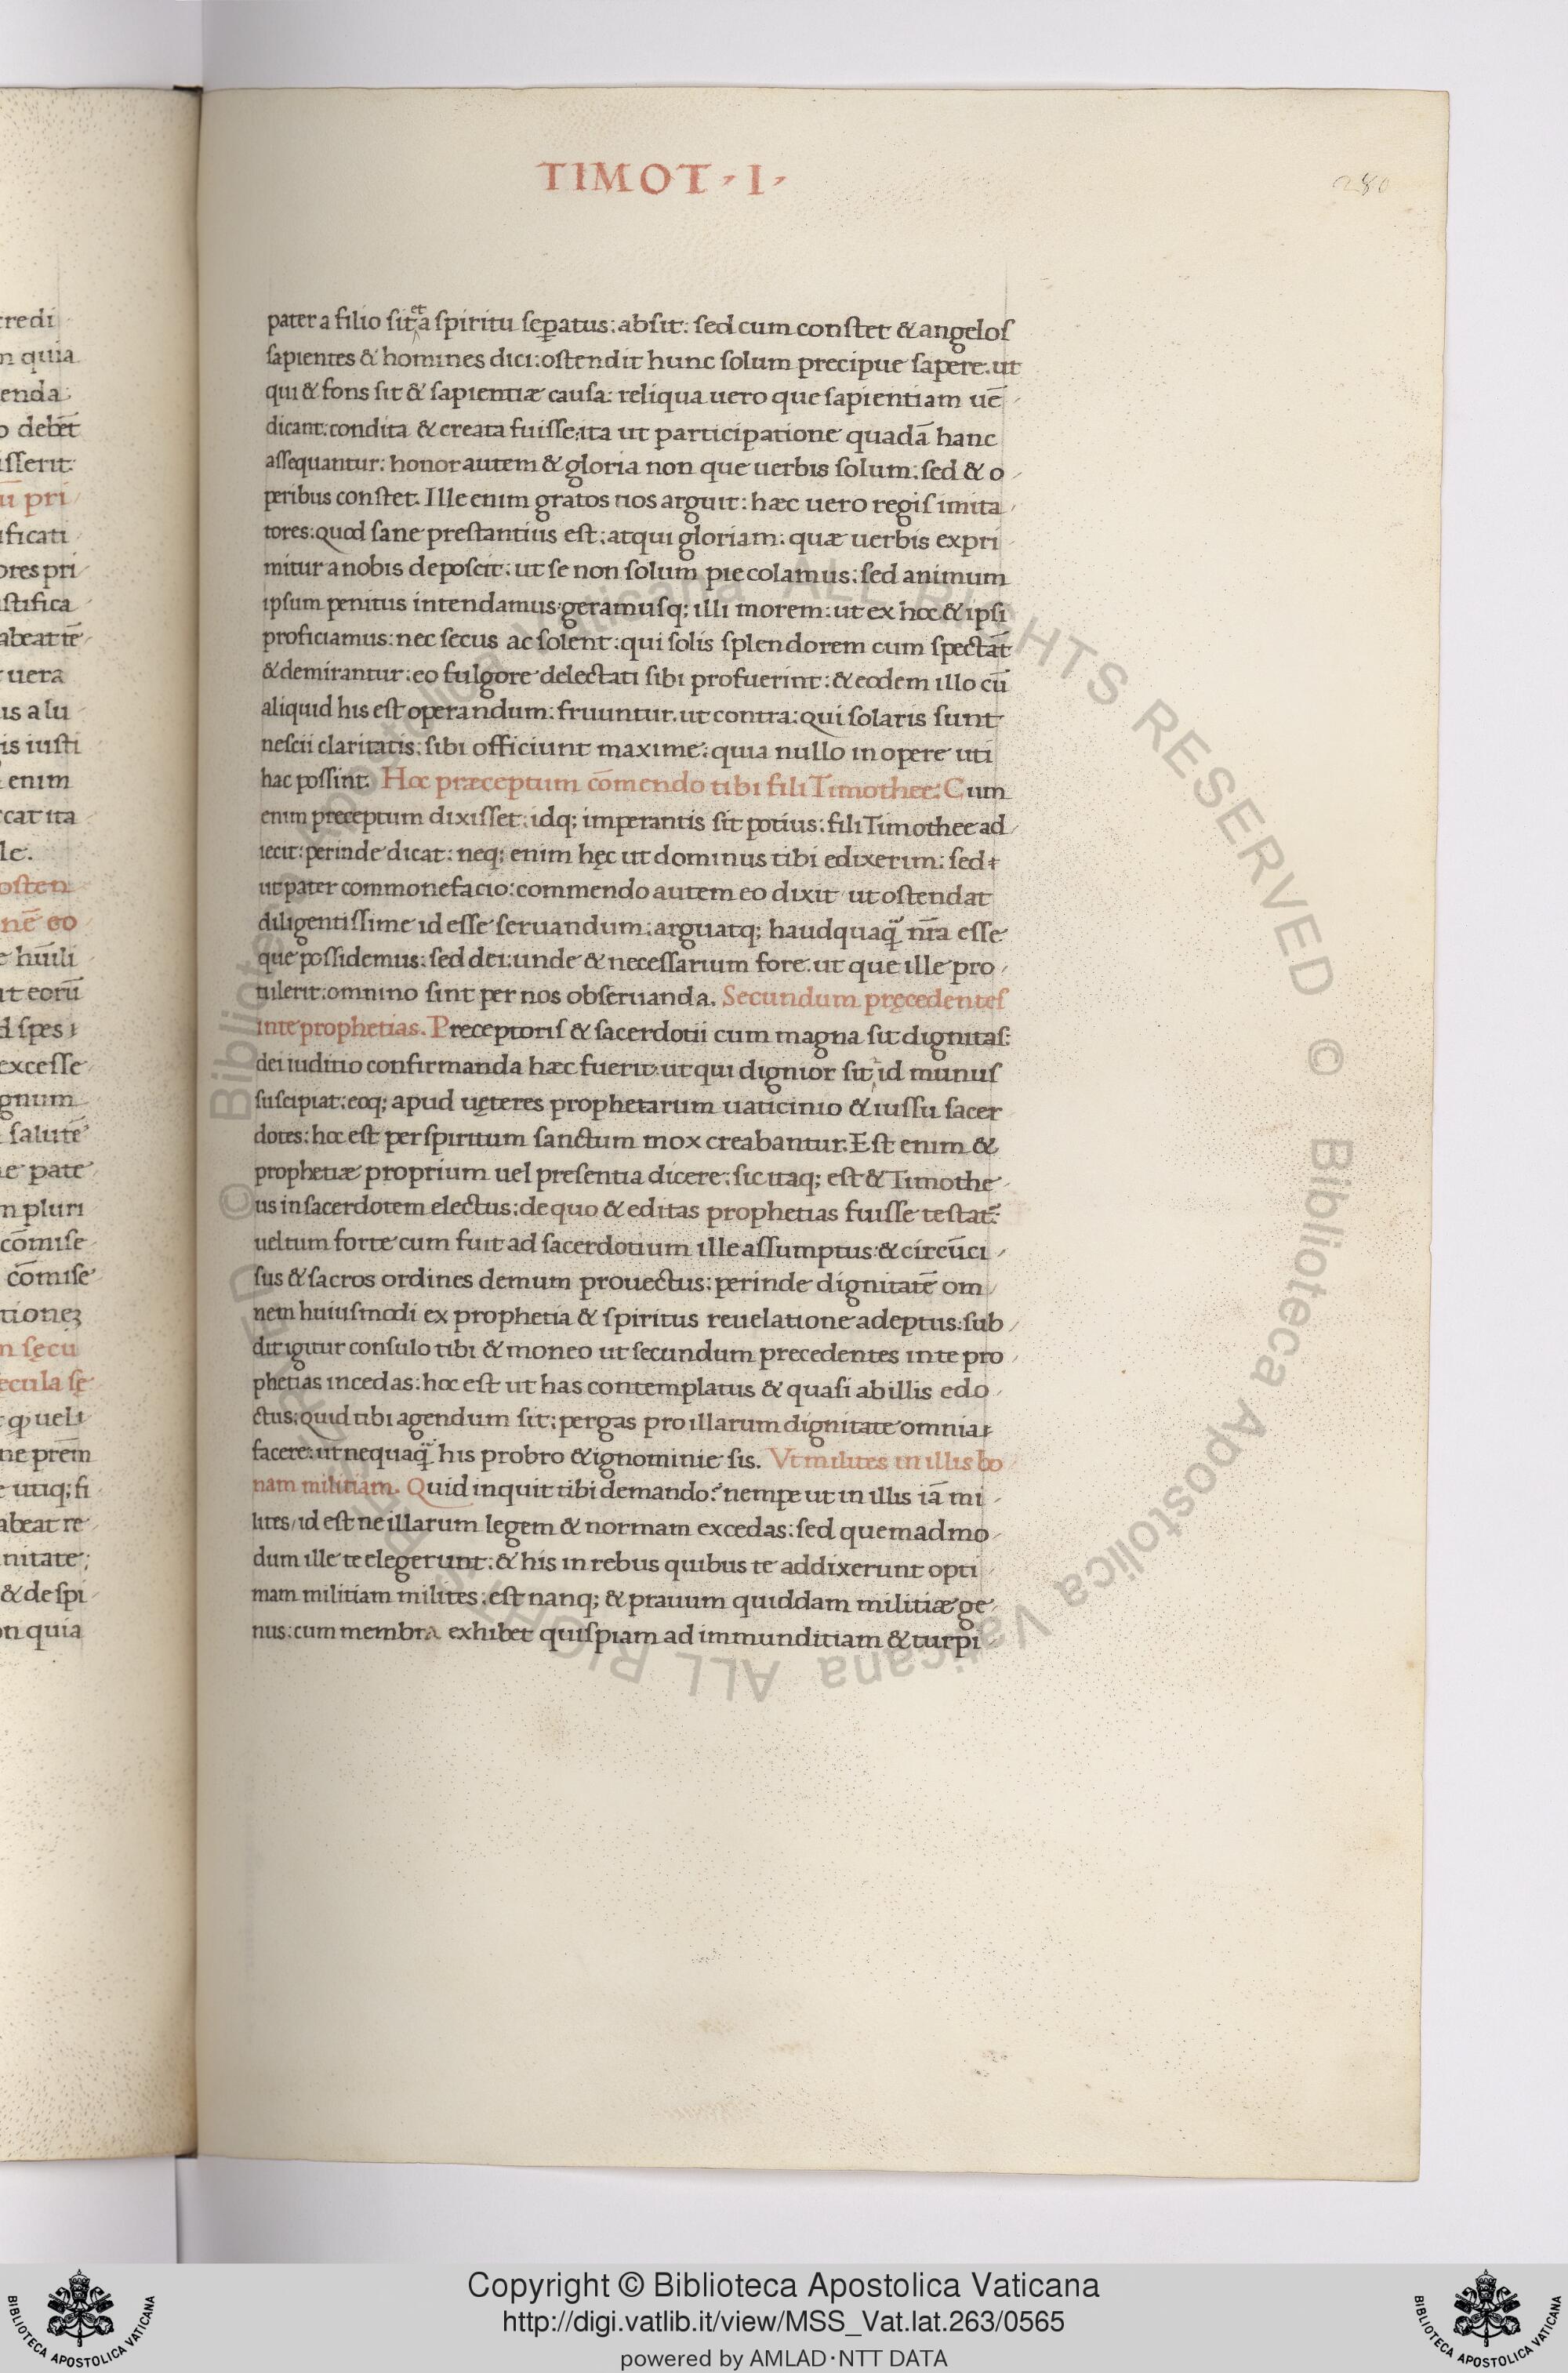 TIMOT · I ·
280
pater a filio sit et a spiritu seꝑatus: absit: sed cum constet & angelos
sapientes & homines dici: ostendit hunc solum precipue sapere. ut
qui & fons sit & sapientiæ causa: reliqua uero que sapientiam uē
dicant: condita & creata fuisse: ita ut participatione quadā hanc
assequantur: honor autem & gloria non que uerbis solum: sed & o
peribus constet. Ille enim gratos nos arguit: hæc uero regis imita
tores: quod sane prestantius est: atqui gloriam: quæ uerbis expri
mitur a nobis deposcit: ut se non solum pie colamus: sed animum
ipsum penitus intendamus: geramusq; illi morem: ut ex hoc & ipsi
proficiamus: nec secus ac solent: qui solis splendorem cum spectāt
& demirantur: eo fulgore delectati sibi profuerint: & eodem illo cū
aliquid his est operandum: fruuntur. ut contra: qui solaris sunt
nescii claritatis: sibi officiunt maxime: quia nullo in opere uti
hac possint. Hoc præceptum cōmendo tibi fili Timothee: Cum
enim preceptum dixisset: idq; imperantis sit potius: fili Timothee ad
iecit: perinde dicat: neq; enim hęc ut dominus tibi edixerim: sed
ut pater commonefacio: commendo autem eo dixit ut ostendat
diligentissime id esse seruandum: arguatq; haudquaq̃ nr̄a esse
que possidemus: sed dei: unde & necessarium fore. ut que ille pro
tulerit: omnino sint per nos obseruanda. Secundum pręcedentes
in te prophetias. Preceptoris & sacerdotii cum magna sit dignitas:
dei iuditio confirmanda hæc fuerit: ut qui dignior sit id munus
suscipiat: eoq; apud uęteres prophetarum uaticinio & iussu sacer
dotes: hoc est per spiritum sanctum mox creabantur. Est enim &
prophetiæ proprium uel presentia dicere: sic itaq; est & Timothe
us in sacerdotem electus: de quo & editas prophetias fuisse testat᷑:
uel tum forte cum fuit ad sacerdotium ille assumptus: & circūci
sus & sacros ordines demum prouectus: perinde dignitatē om
nem huiusmodi ex prophetia & spiritus reuelatione adeptus: sub
dit igitur consulo tibi & moneo ut secundum precedentes in te pro
phetias incedas: hoc est ut has contemplatus & quasi ab illis edo
ctus: quid tibi agendum sit: pergas pro illarum dignitate omnia
facere: ut nequaq̃ his probro & ignominie sis. Vt milites in illis bo
nam militiam. Quid inquit tibi demando? nempe ut in illis iā mi
lites/ id est ne illarum legem & normam excedas: sed quemadmo
dum ille te elegerunt: & his in rebus quibus te addixerunt opti
mam militiam milites: est nanq; & prauum quiddam militiæ ge
nus: cum membra exhibet quispiam ad immunditiam & turpi
Copyright © Biblioteca Apostolica Vaticana
http://digi.vatlib.it/view/MSS_Vat.lat.263/0565
powered by AMLAD·NTT DATA